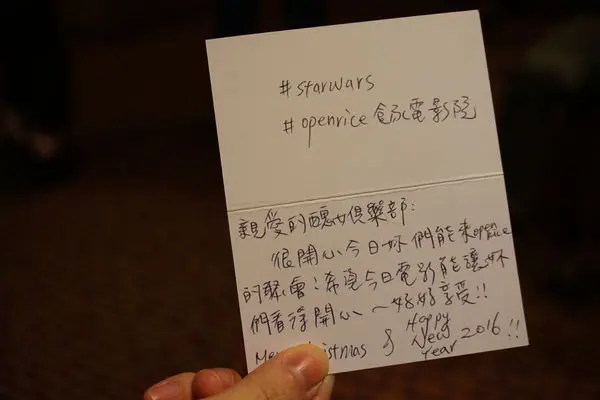 #starwars
#openrice 食玩電影院
親愛的醜女俱樂部：
很開心今日妳們能來openrice
的聚會！希望今日電影能讓妳
們看得開心～好好享受!!
Merry Christmas & Happy New Year 2016!!